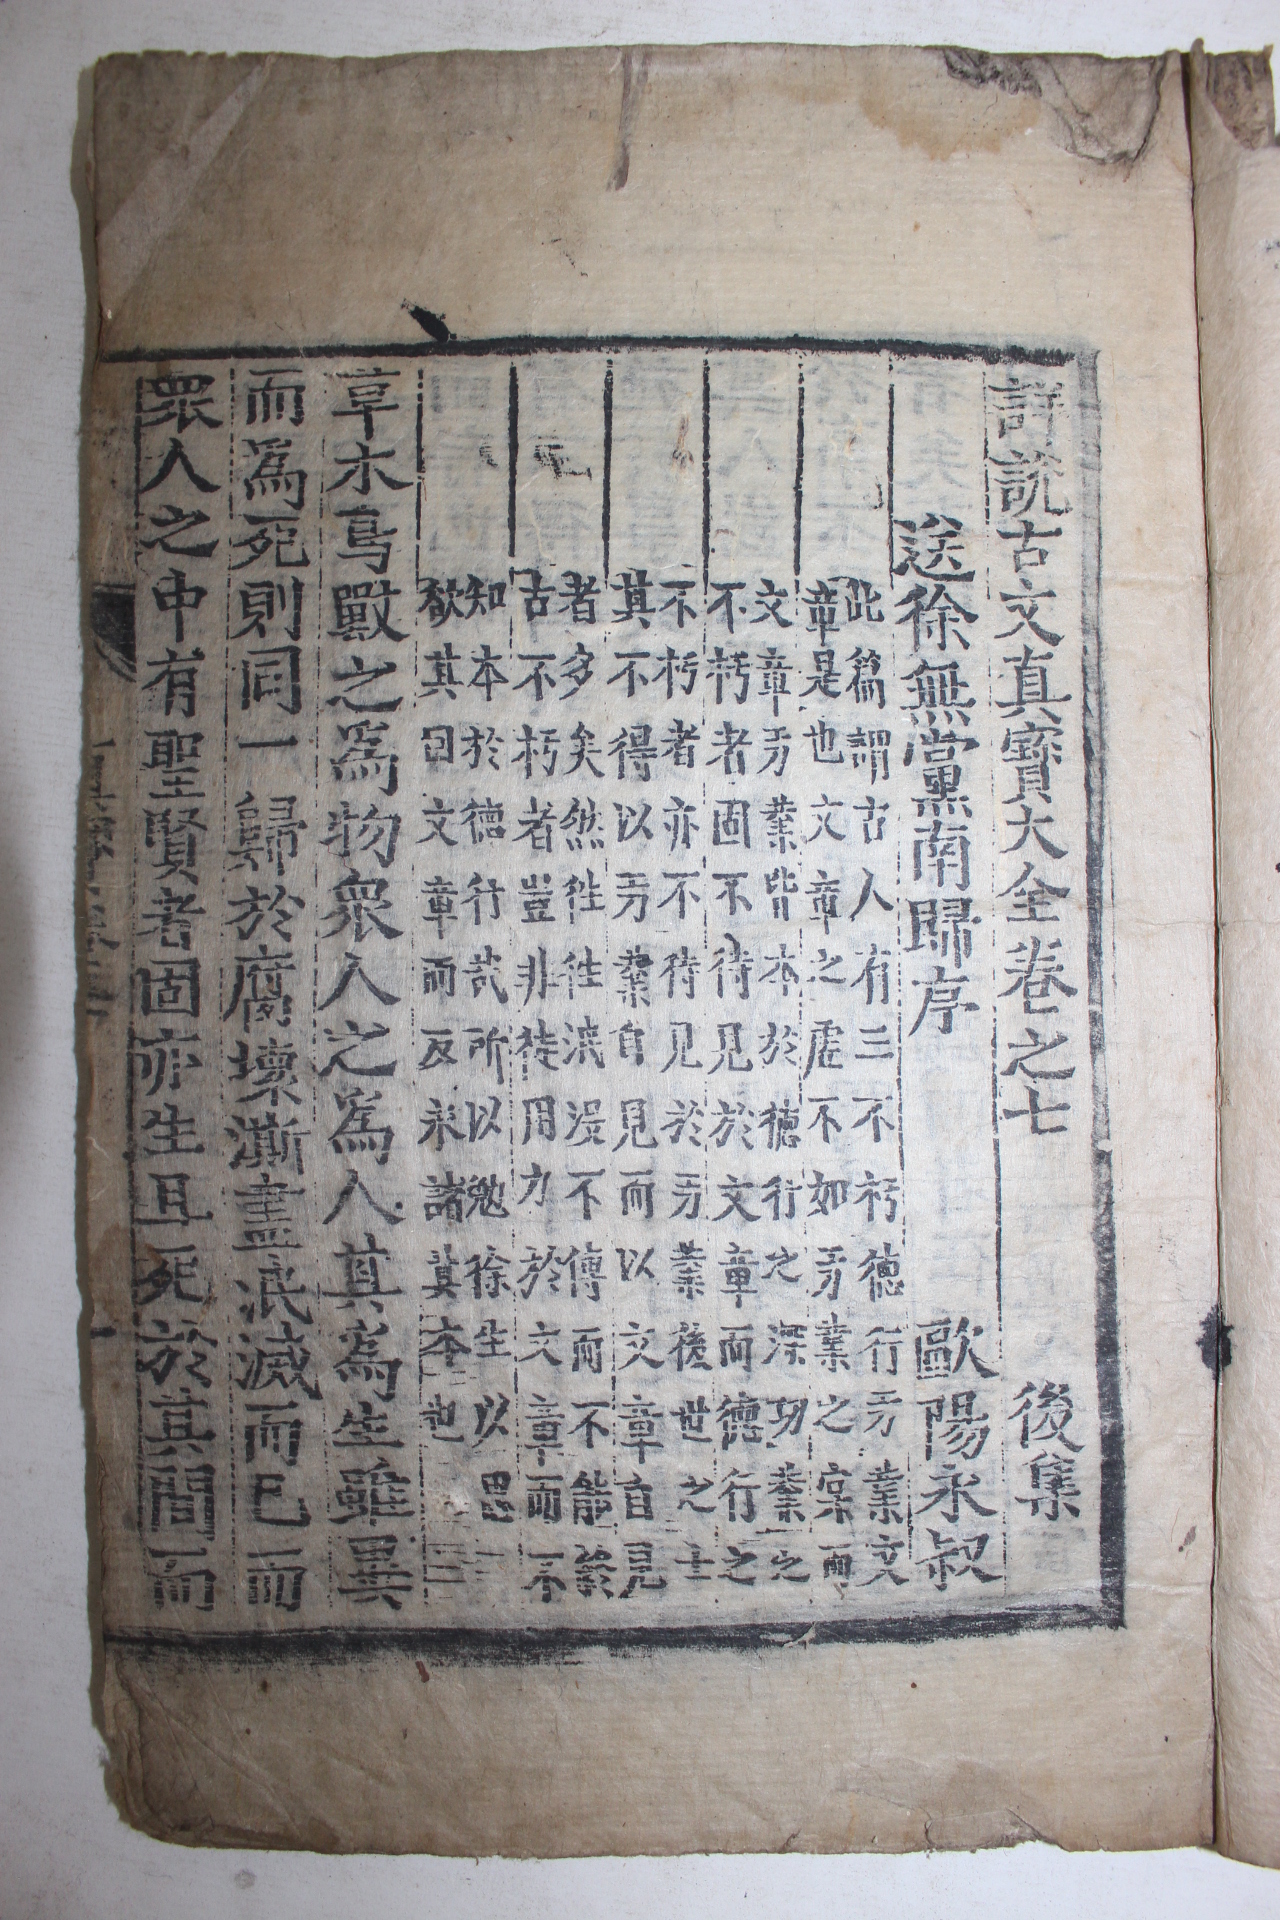 詳說古文真寶大全卷之七　後集
送徐無黨南歸序　歐陽永叔
此篇謂古人有三不朽德行事業文
章是也文章之虛不如事業之實而
文章事業皆本於德行之深功業之
不朽者固不待見於文章而德行之
不朽者亦不待見於事業後世之士
其不得以事業自見而以文章自見
者多矣然徃徃泯沒不傳而不能於
古不朽者豈非徒用力於文章而不
知本於德行哉所以勉徐生以思三
歎其曰文章而反求諸其本也
草木鳥獸之爲物衆人之爲人其爲生雖異
而爲死則同一歸於腐壞澌盡泯滅而已而
衆人之中有聖賢者固亦生且死於其間而